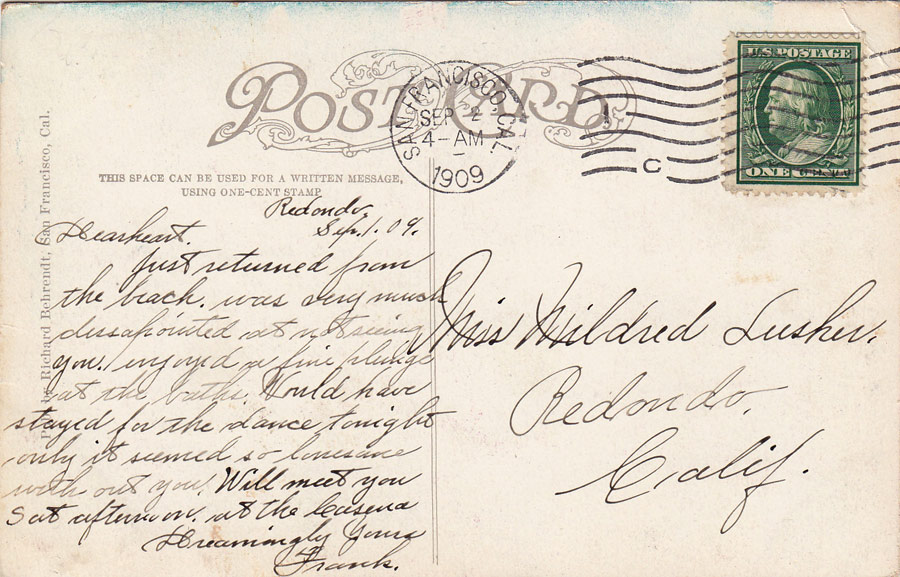 POST CARD
SAN FRANCISCO, CAL.
SEP 2
4-AM
1909
C
U.S. POSTAGE
ONE
THIS SPACE CAN BE USED FOR A WRITTEN MESSAGE,
USING ONE-CENT STAMP
Richard Behrendt, San Francisco, Cal.
Redondo,
Sep. 1. 09.
Dearheart.
Just returned from
the beach. was very much
dissapointed at not seeing
you. enjoyed a fine plunge
at the baths. Would have
stayed for the dance tonight
only it seemed so lonesome
with out you. Will meet you
Sat afternoon. at the Casena
Dreamingly Yours
Frank.
Miss Mildred Lusher,
Redondo,
Calif.